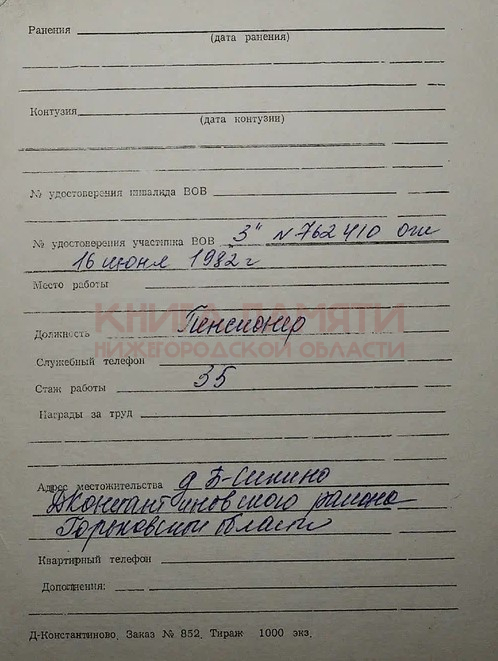 Ранения
(дата ранения)
Контузия
(дата контузии)
№ удостоверения инвалида ВОВ
№ удостоверения участника ВОВ 3" N 762410 от
16 июня 1982 г
Место работы
КНИГА ПАМЯТИ
Должность Пенсионер
НИЖЕГОРОДСКОЙ ОБЛАСТИ
Служебный телефон
Стаж работы 35
Награды за труд
Адрес местожительства д Б-Сипино
Дконстантиновского района
Горьковской области
Квартирный телефон
Дополнения:
Д-Константиново. Заказ № 852. Тираж 1000 экз.